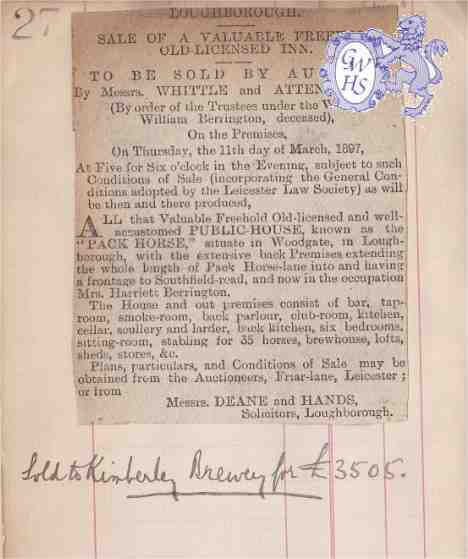 27
LOUGHBOROUGH.
SALE OF A VALUABLE FREE
OLD-LICENSED INN.
TO BE SOLD BY AU
By Messrs. WHITTLE and ATTEN
(By order of the Trustees under the W
William Berrington, deceased),
On the Premises,
On Thursday, the 11th day of March, 1897,
At Five for Six o'clock in the Evening, subject to such
Conditions of Sale (incorporating the General Con-
ditions adopted by the Leicester Law Society) as will
be then and there produced,
ALL that Valuable Freehold Old-licensed and well-
accustomed PUBLIC-HOUSE, known as the
"PACK HORSE," situate in Woodgate, in Lough-
borough, with the extensive back Premises extending
the whole length of Pack Horse-lane into and having
a frontage to Southfield-road, and now in the occupation
Mrs. Harriett Berrington.
The House and out premises consist of bar, tap-
room, smoke-room, back parlour, club-room, kitchen,
cellar, scullery and larder, back kitchen, six bedrooms,
sitting-room, stabling for 35 horses, brewhouse, lofts,
sheds, stores, &c.
Plans, particulars, and Conditions of Sale may be
obtained from the Auctioneers, Friar-lane, Leicester;
or from
Messrs. DEANE and HANDS,
Solicitors, Loughborough.
Sold to Kimberley Brewey for £3505.
GWHS